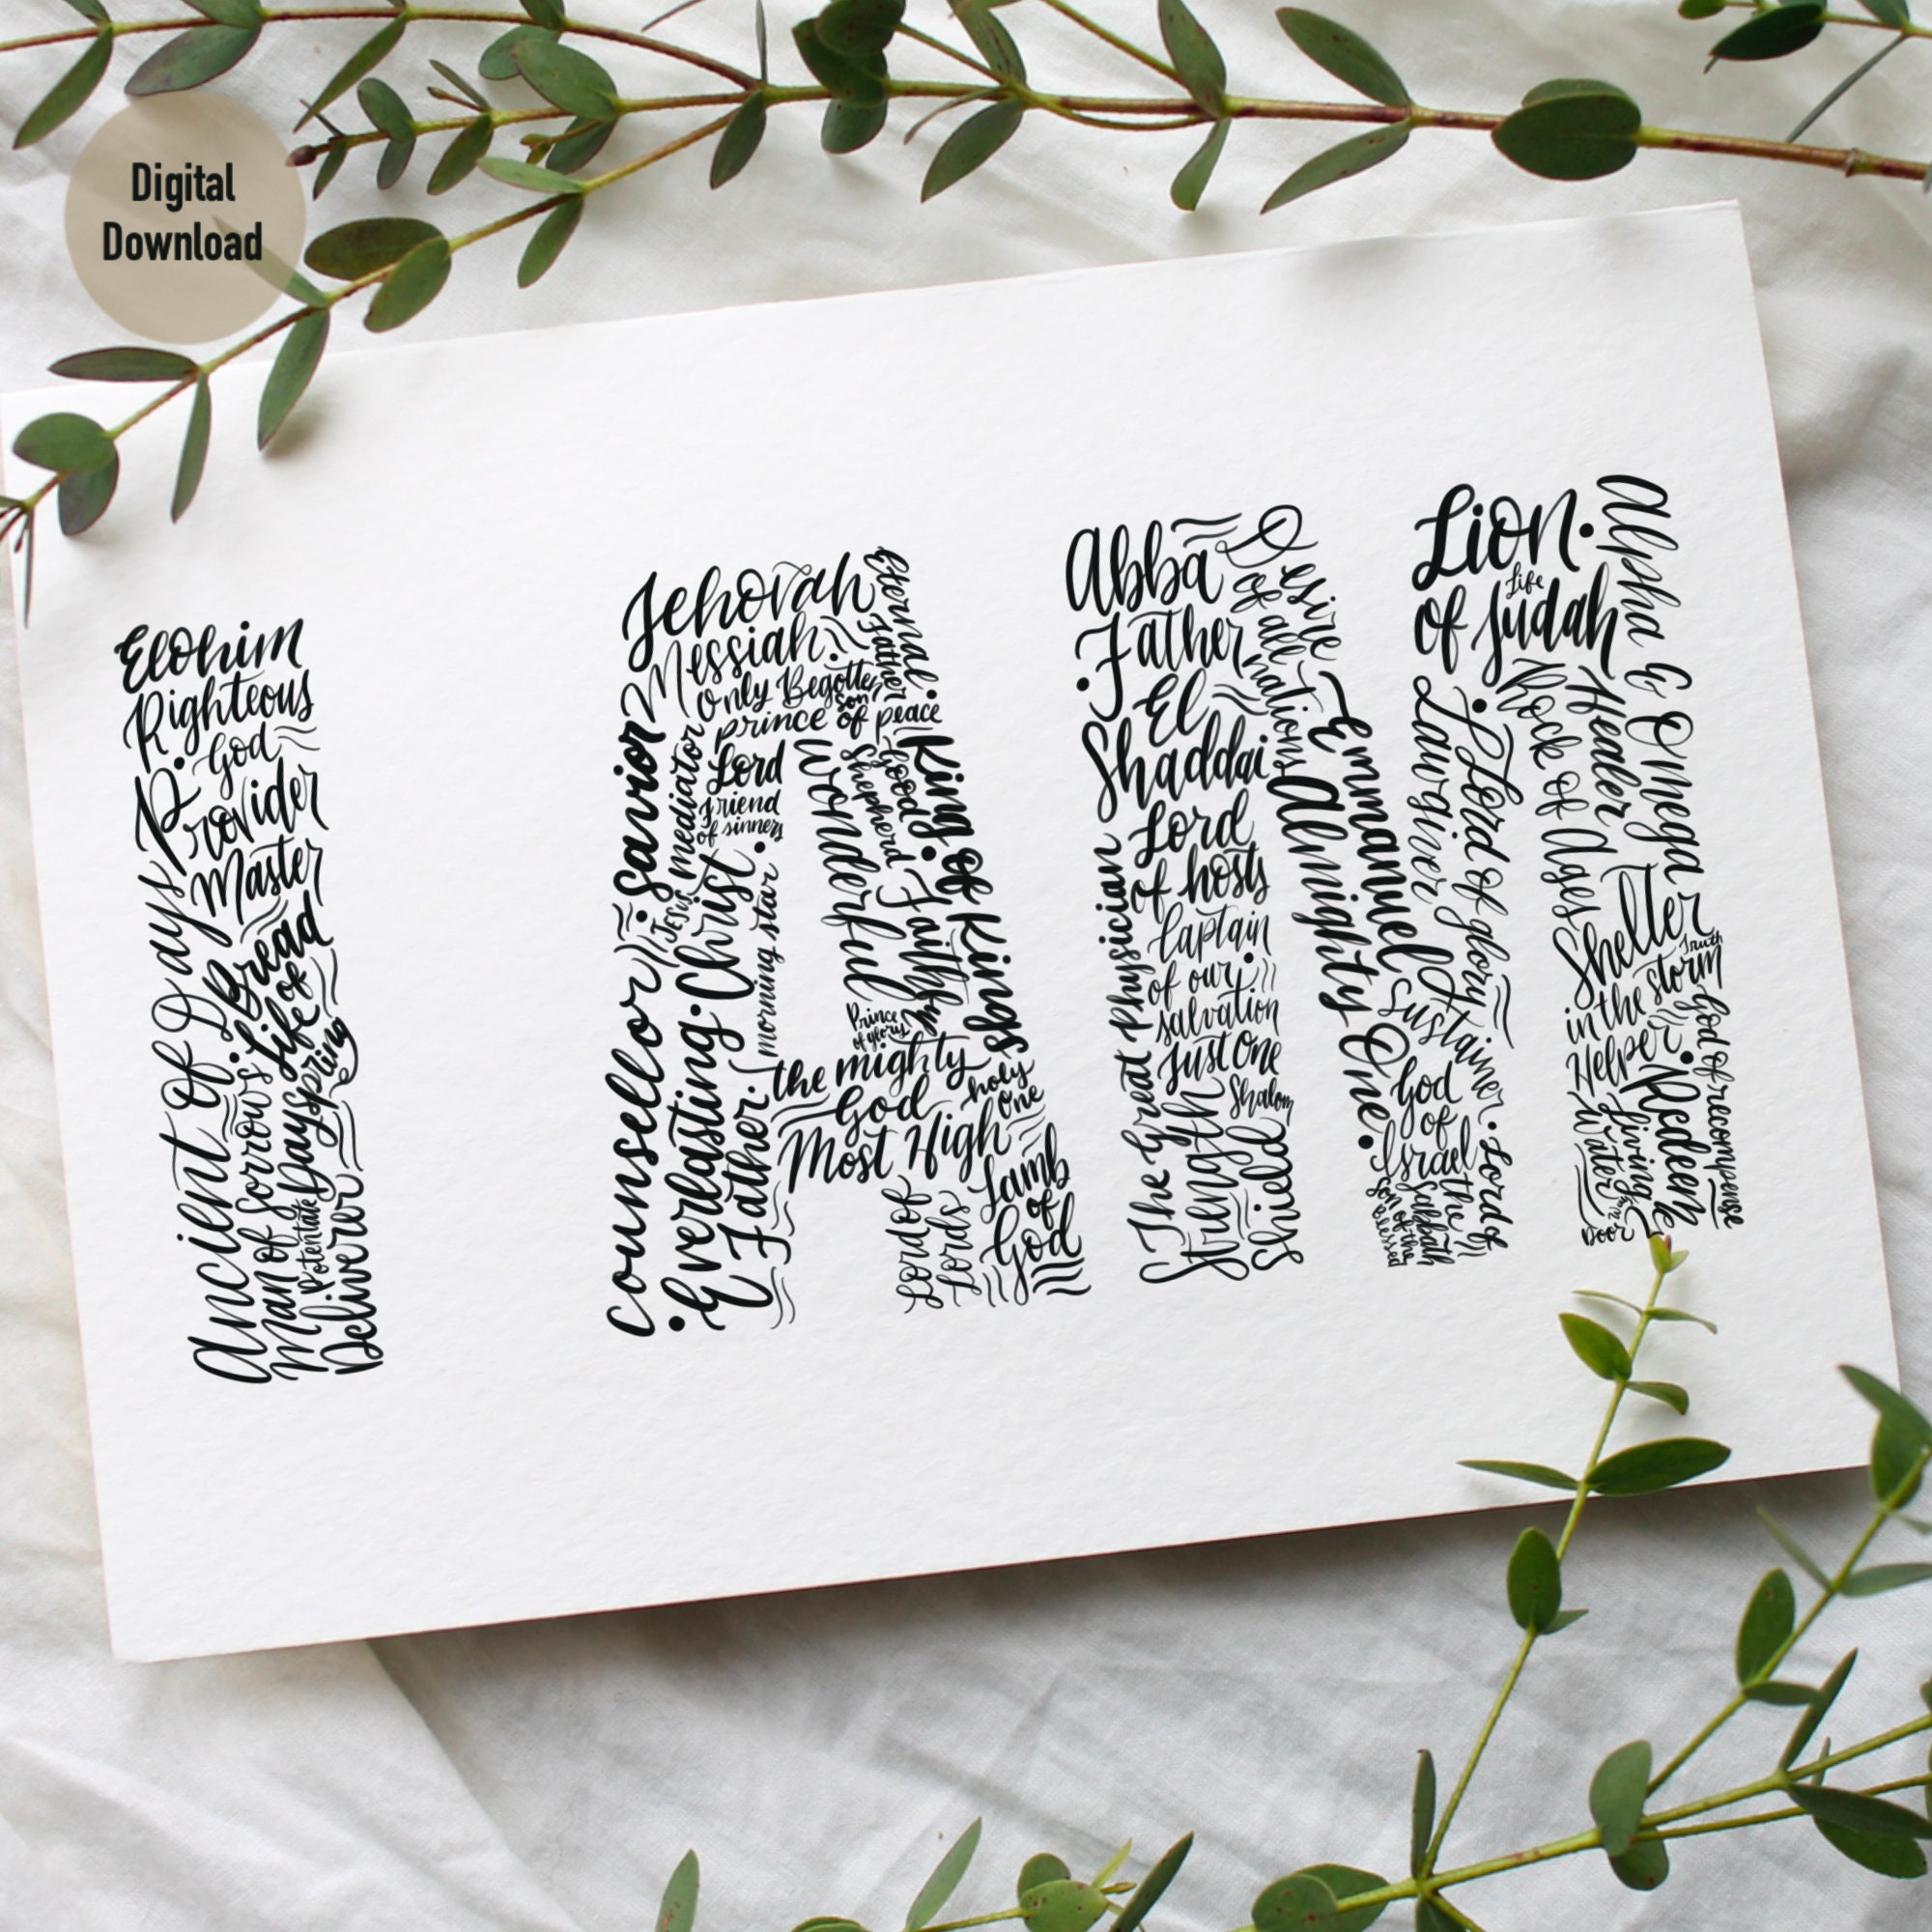 Digital
Download
Elohim
Righteous
God
Provider
Master
Ancient of Days
Bread
of Life
Man of Sorrows
Dayspring
Potentate
Deliverer
Jehovah
Messiah
Eternal
Father
Only Begotten
Son
Prince of peace
Savior
mediator
Lord
friend
of sinners
Wonderful
Good
Shepherd
King of Kings
Faithful
Jesus
Christ
morning star
Counsellor
Everlasting
Father
Prince
of glory
the mighty
God
holy
one
Most High
Lamb
of
God
Lord of
Lords
Abba
Father
Desire
of all
nations
El
Shaddai
Emmanuel
Lord
of hosts
Almighty One
The Great Physician
Captain
of our
salvation
Just One
Shalom
Strength
Shield
Lion
of Judah
Life
Alpha & Omega
Lawgiver
Lord of glory
Rock of Ages
Healer
Sustainer
God
of
Israel
Son of the
blessed
Lord of
the
Sabbath
Shelter
in the storm
Truth
Helper
God of recompense
Redeemer
Living
Water
Door